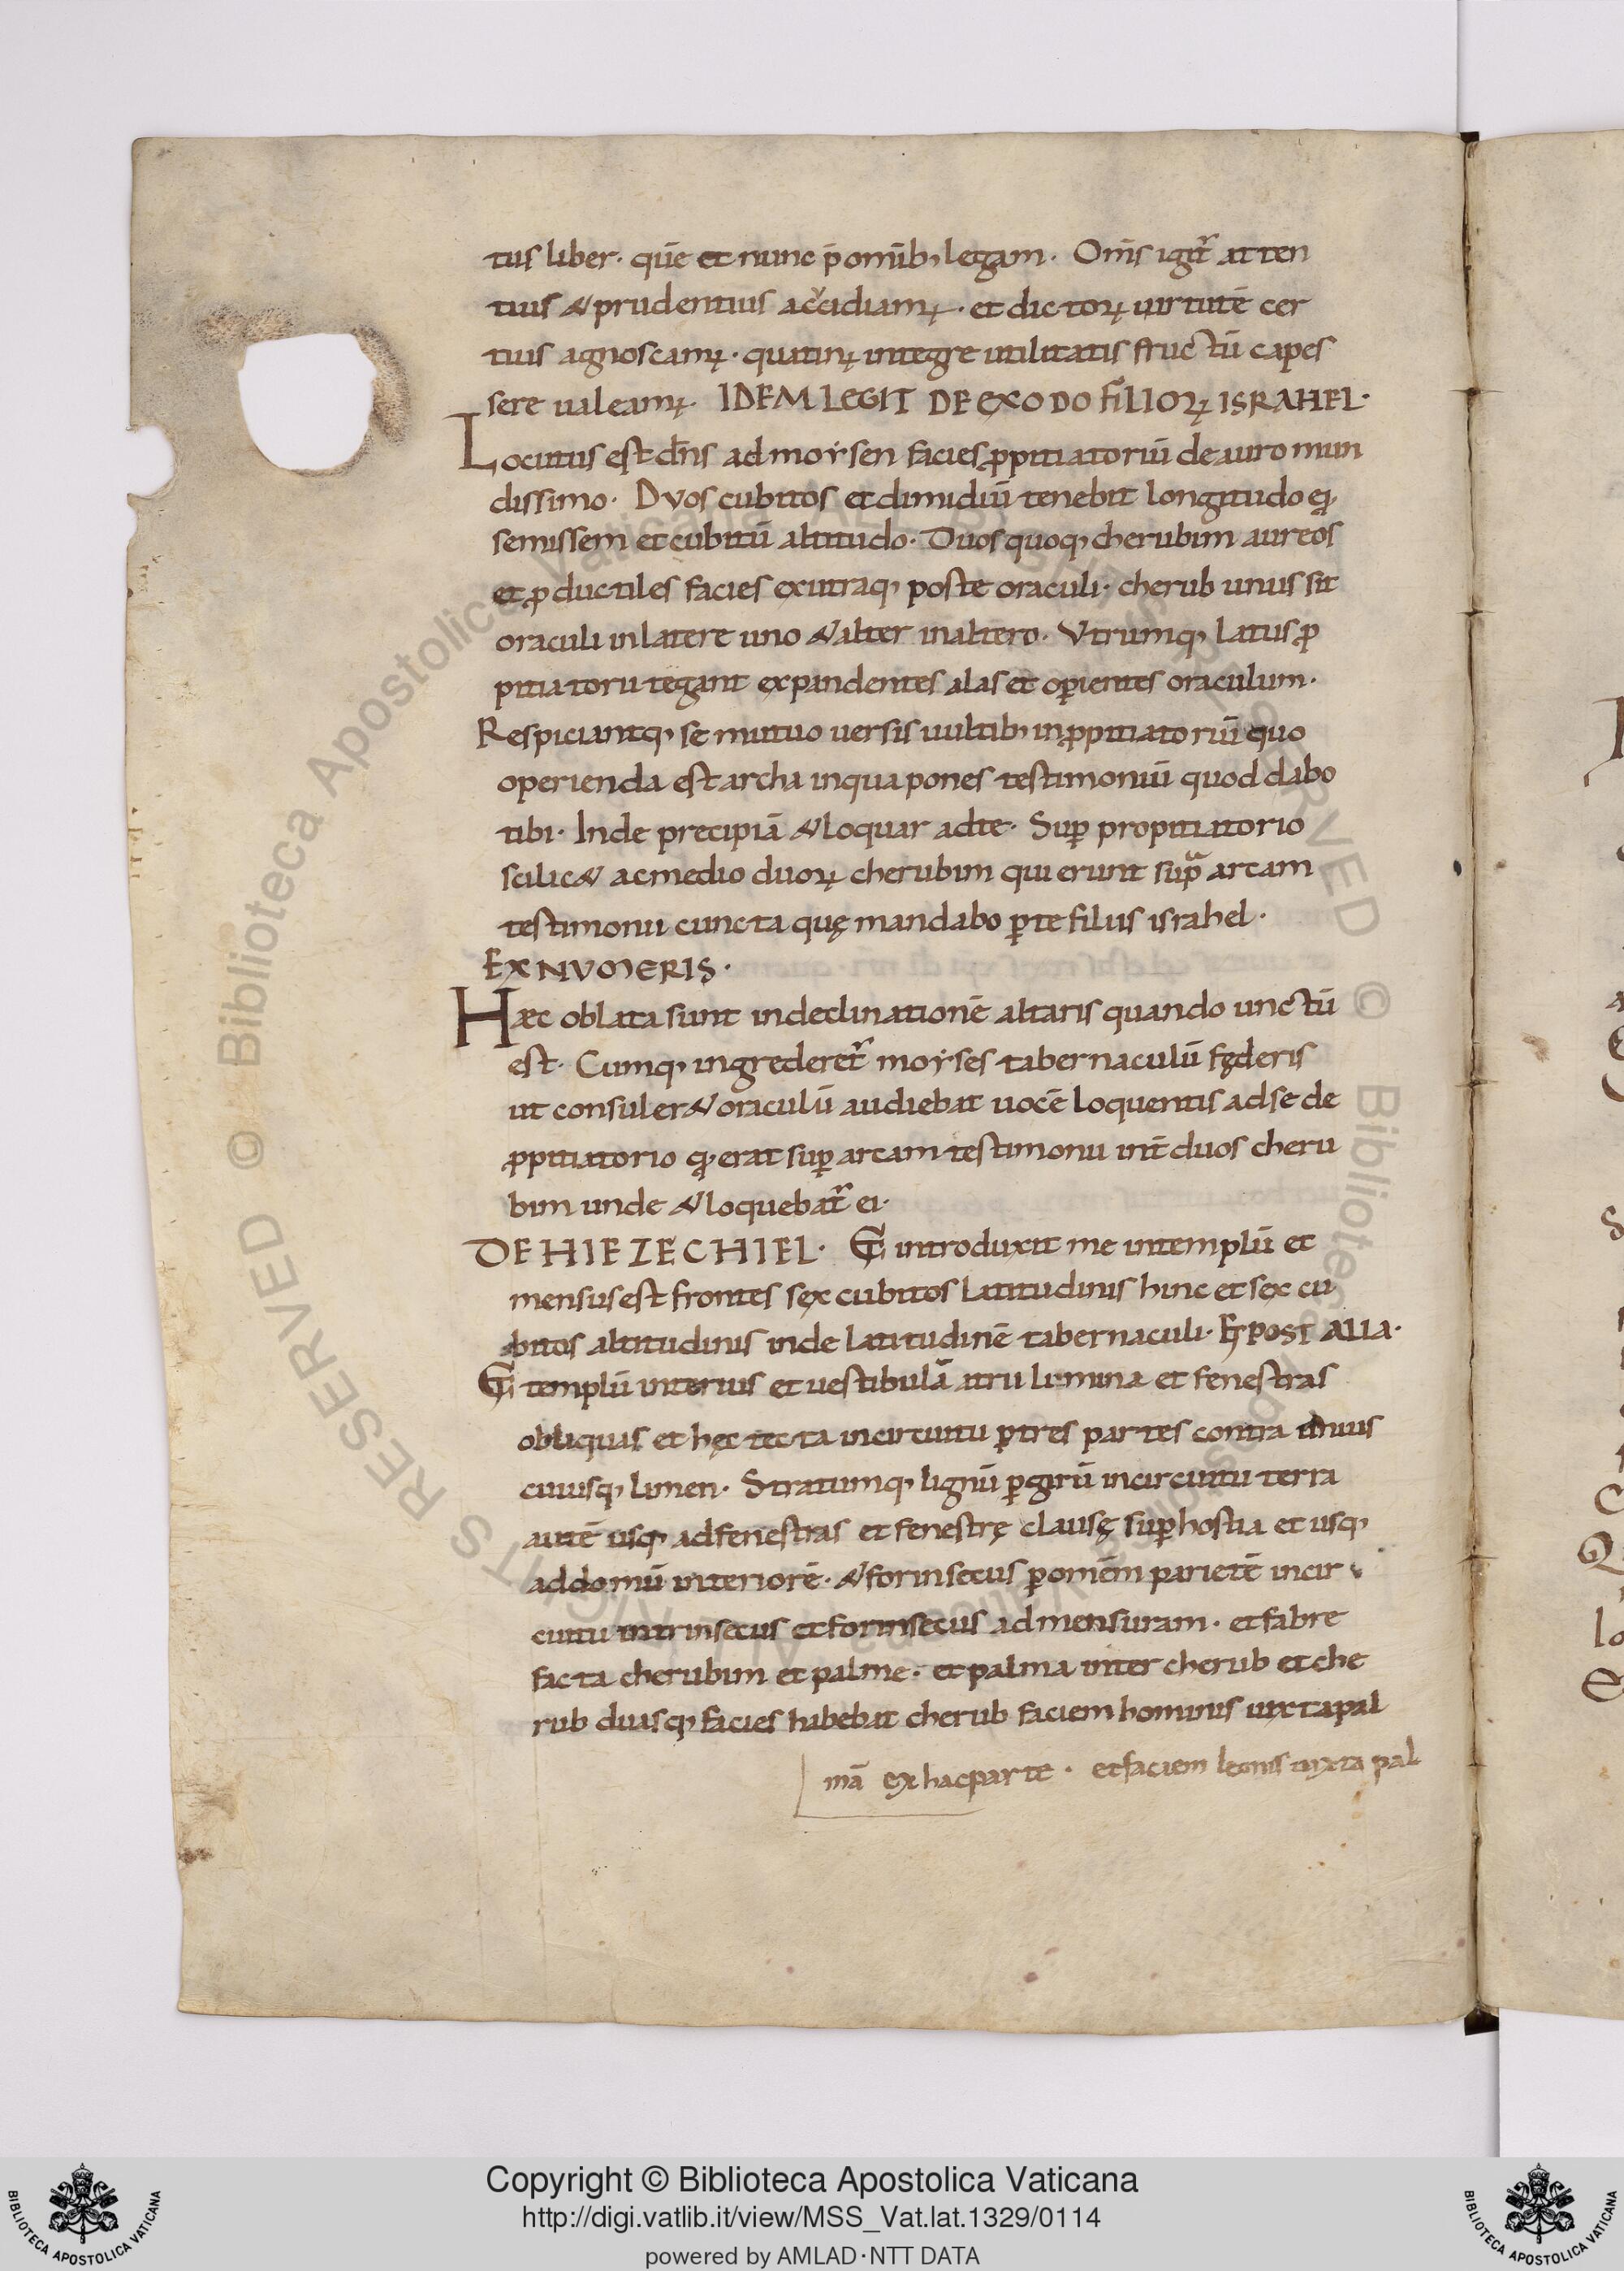 tus liber· quē et nunc p̄ omīb; legam· Om̄s igit᷑ atten
tius & prudentius accidiamꝰ· et dictoꝝ uirtutē cer
tius agnoscamꝰ· quatinꝰ integre utilitatis fructū capes
sere ualeamꝰ· IDEM LEGIT DE EXODO FILIOꝝ ISRAHEL·
Locutus est dn̄s ad moẏsen facies ꝓpitiatoriū de auro mun
dissimo· Duos cubitos et dimidiū tenebit longitudo eiꝰ
semissem et cubitū altitudo· Duos quoq; cherubim aureos
et ꝓductiles facies ex utraq; poste oraculi· cherub unus sit
oraculi in latere uno & alter in altero· Vtrumq; latus ꝓ
pitiatorii tegant expandentes alas et oꝑientes oraculum·
Respiciantq; se mutuo uersis uultib; in ꝓpitiatoriū quo
operienda est archa in qua pones testimoniū quod dabo
tibi· Inde precipiā & loquar ad te· Suꝑ propitiatorio
scilic& ac medio duoꝝ cherubim qui erunt supᷓ arcam
testimonii cuncta quę mandabo ꝑ te filiis israhel·
EX NUMERIS·
Hæc oblata sunt in declinationē altaris quando unctū
est· Cumq; ingrederet᷑ moẏses tabernaculū fęderis
ut consuler& oraculū audiebat uocē loquentis ad se de
ꝓpitiatorio q; erat suꝑ arcam testimonii int̄ duos cheru
bim unde & loquebat᷑ ei·
DE HIEZECHIEL· Et introduxit me in templū et
mensus est frontes sex cubitos latitudinis hinc et sex cu
bitos altitudinis inde latitudinē tabernaculi· ET POST ALIA·
Et templū interius et uestibulā atrii limina et fenestras
obliquas et hęc tecta in circuitu ꝑ tres partes contra unius
cuiusq; limen· Stratumq; lignū ꝑ girū in circuitu terra
autē usq; ad fenestras et fenestrę clausę suꝑ hostia et usq;
ad domū interiorē· & forinsecus ꝑ omēm parietē in cir
cuitu intrinsecus et forinsecus ad mensuram· et fabre
facta cherubim et palme· et palma inter cherub et che
rub duasq; facies habebat cherub faciem hominis iuxta pal
mā ex hac parte· et faciem leonis iuxta pal
© Biblioteca Apostolica Vaticana ALL RIGHTS RESERVED © Biblioteca Apostolica Vaticana ALL RIGHTS RESERVED
Copyright © Biblioteca Apostolica Vaticana
http://digi.vatlib.it/view/MSS_Vat.lat.1329/0114
powered by AMLAD·NTT DATA
BIBLIOTECA APOSTOLICA VATICANA
BIBLIOTECA APOSTOLICA VATICANA